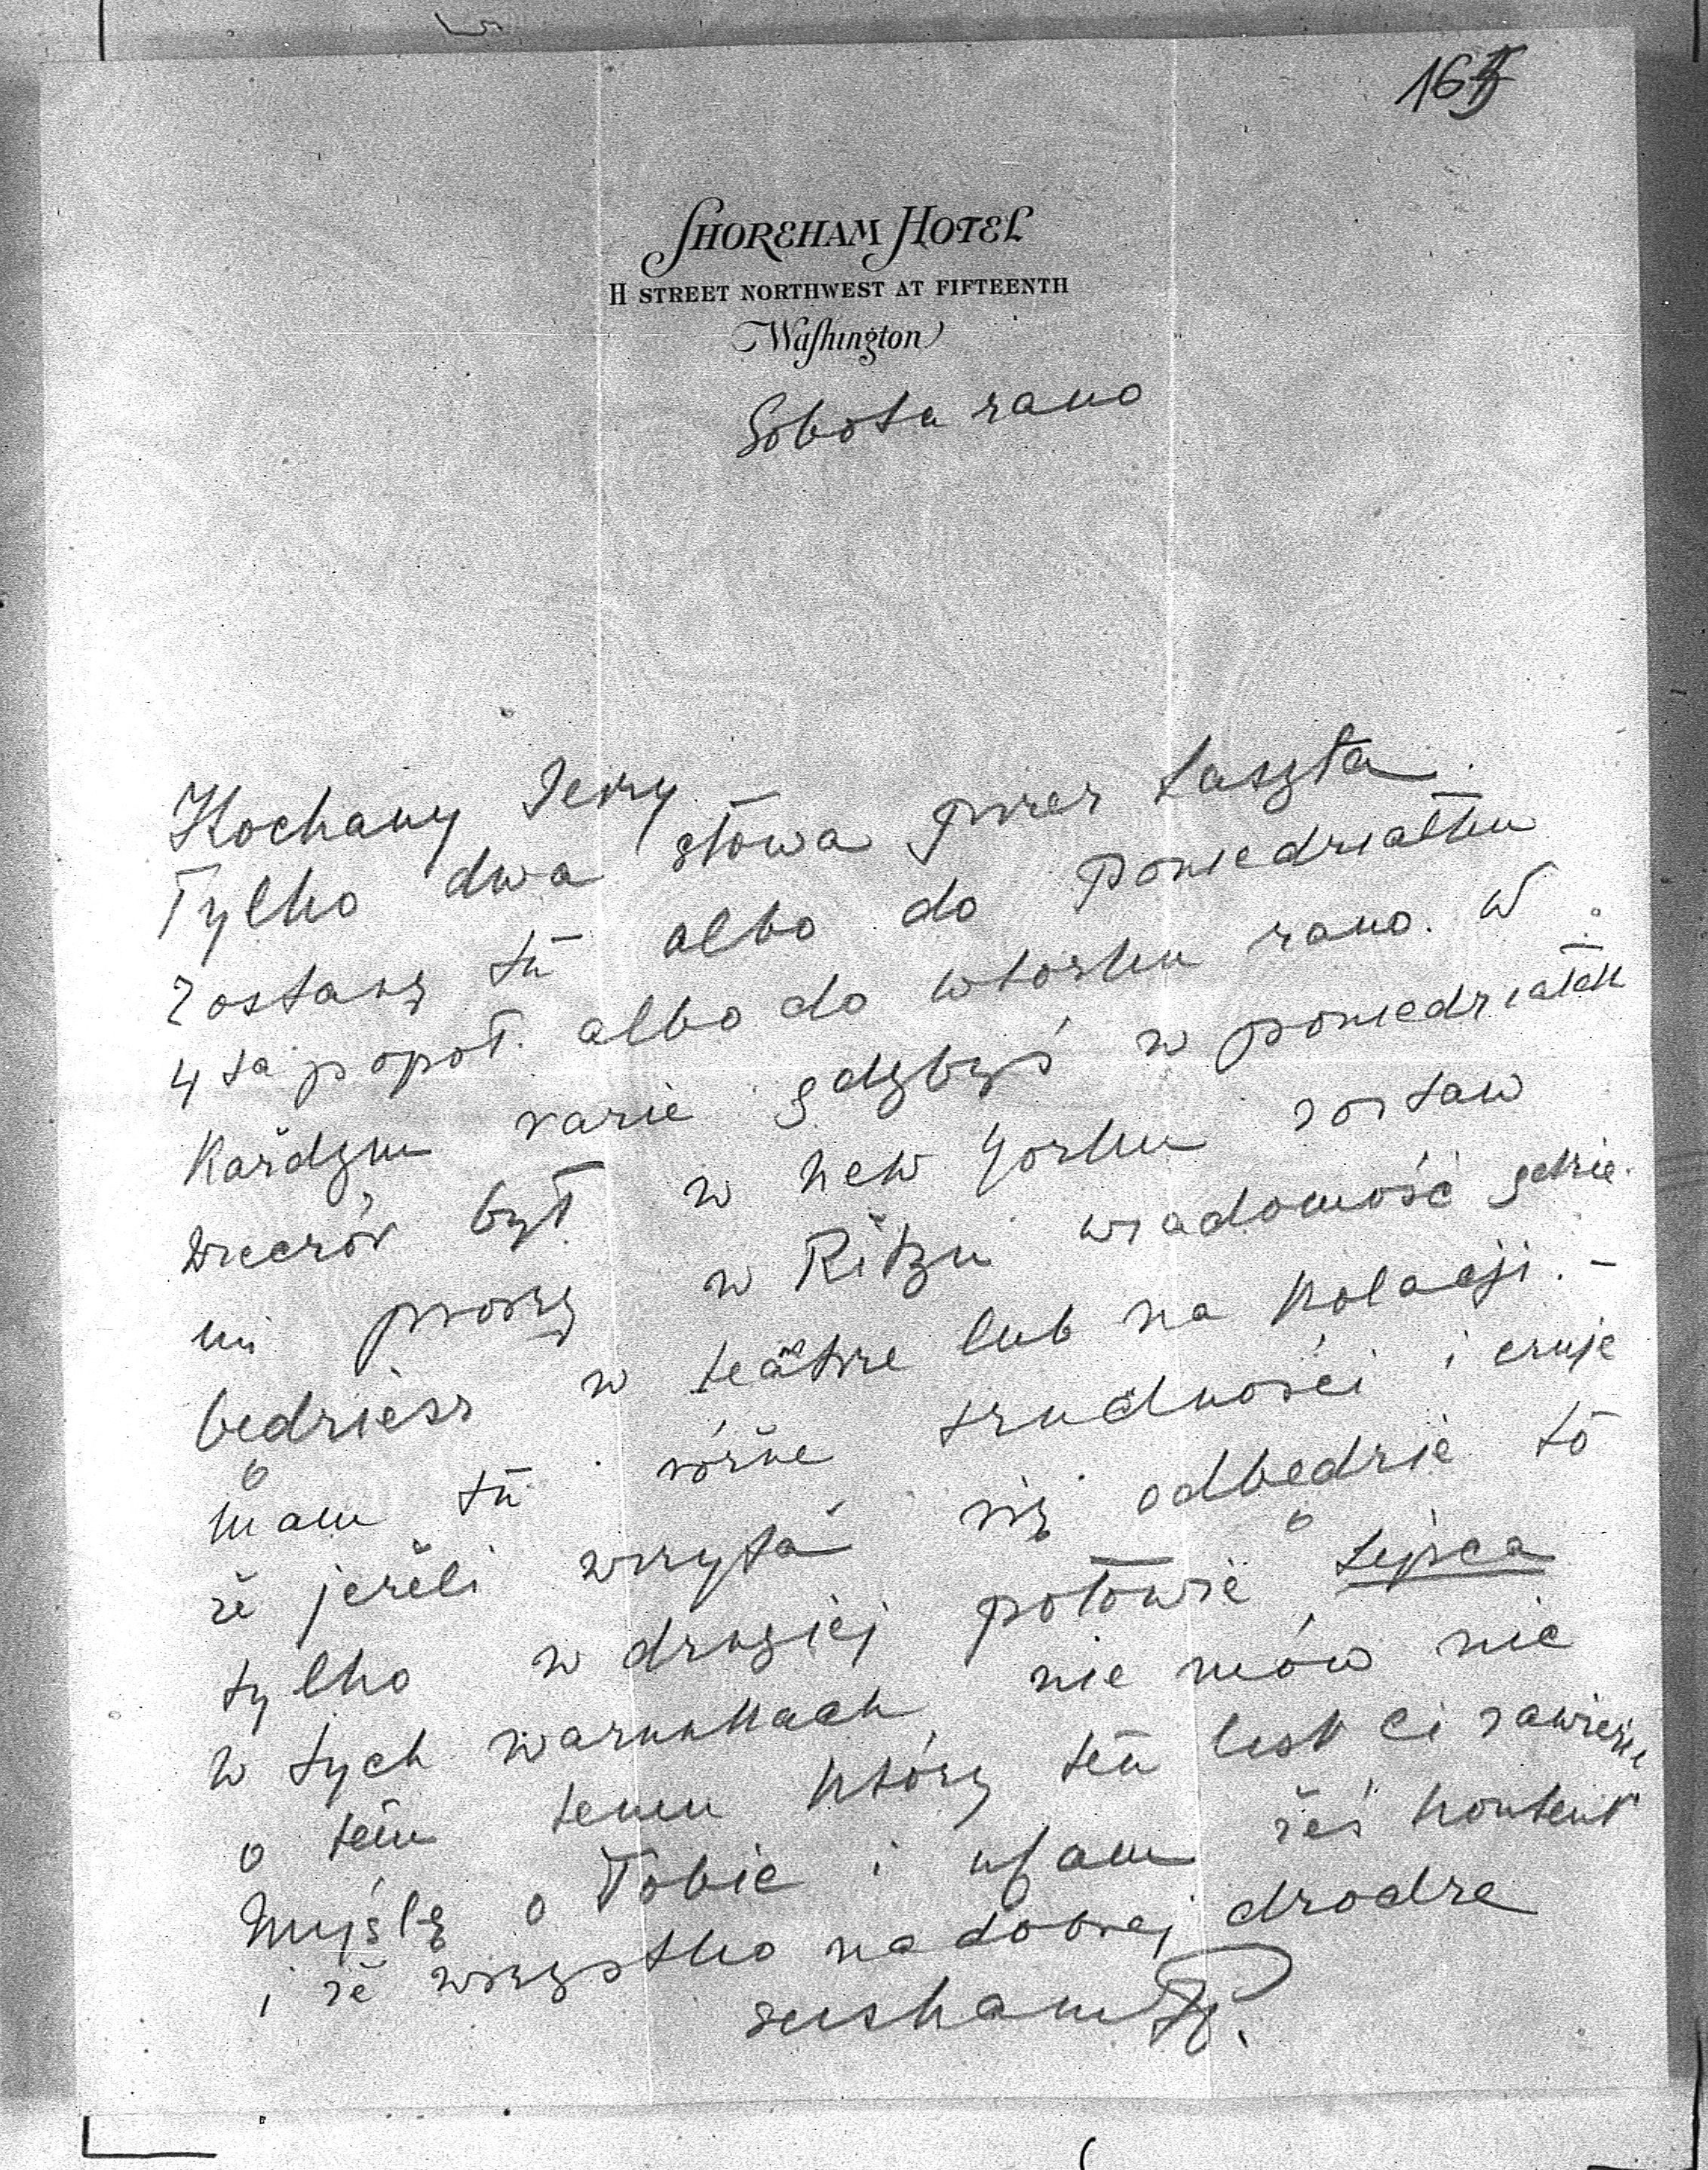 165
SHOREHAM HOTEL
H STREET NORTHWEST AT FIFTEENTH
Washington
Sobota rano
Kochany Jerzy
Tylko dwa słowa przez Łaszta.
Zostanę tu albo do poniedziałku
4ta popoł. albo do wtorku rano. W
każdym razie gdybyś w poniedziałek
wieczór był w New Yorku zostaw
mi proszę w Ritzu wiadomość gdzie
będziesz w teatrze lub na kolacji. –
Mam tu różne trudności i czuję
że jeżeli wizyta się odbędzie to
tylko w drugiej połowie Lipca
w tych warunkach nie mów nic
o tem temu który ten list Ci zawiezie
Myślę o Tobie i ufam żeś kontent
i że wszystko na dobrej drodze